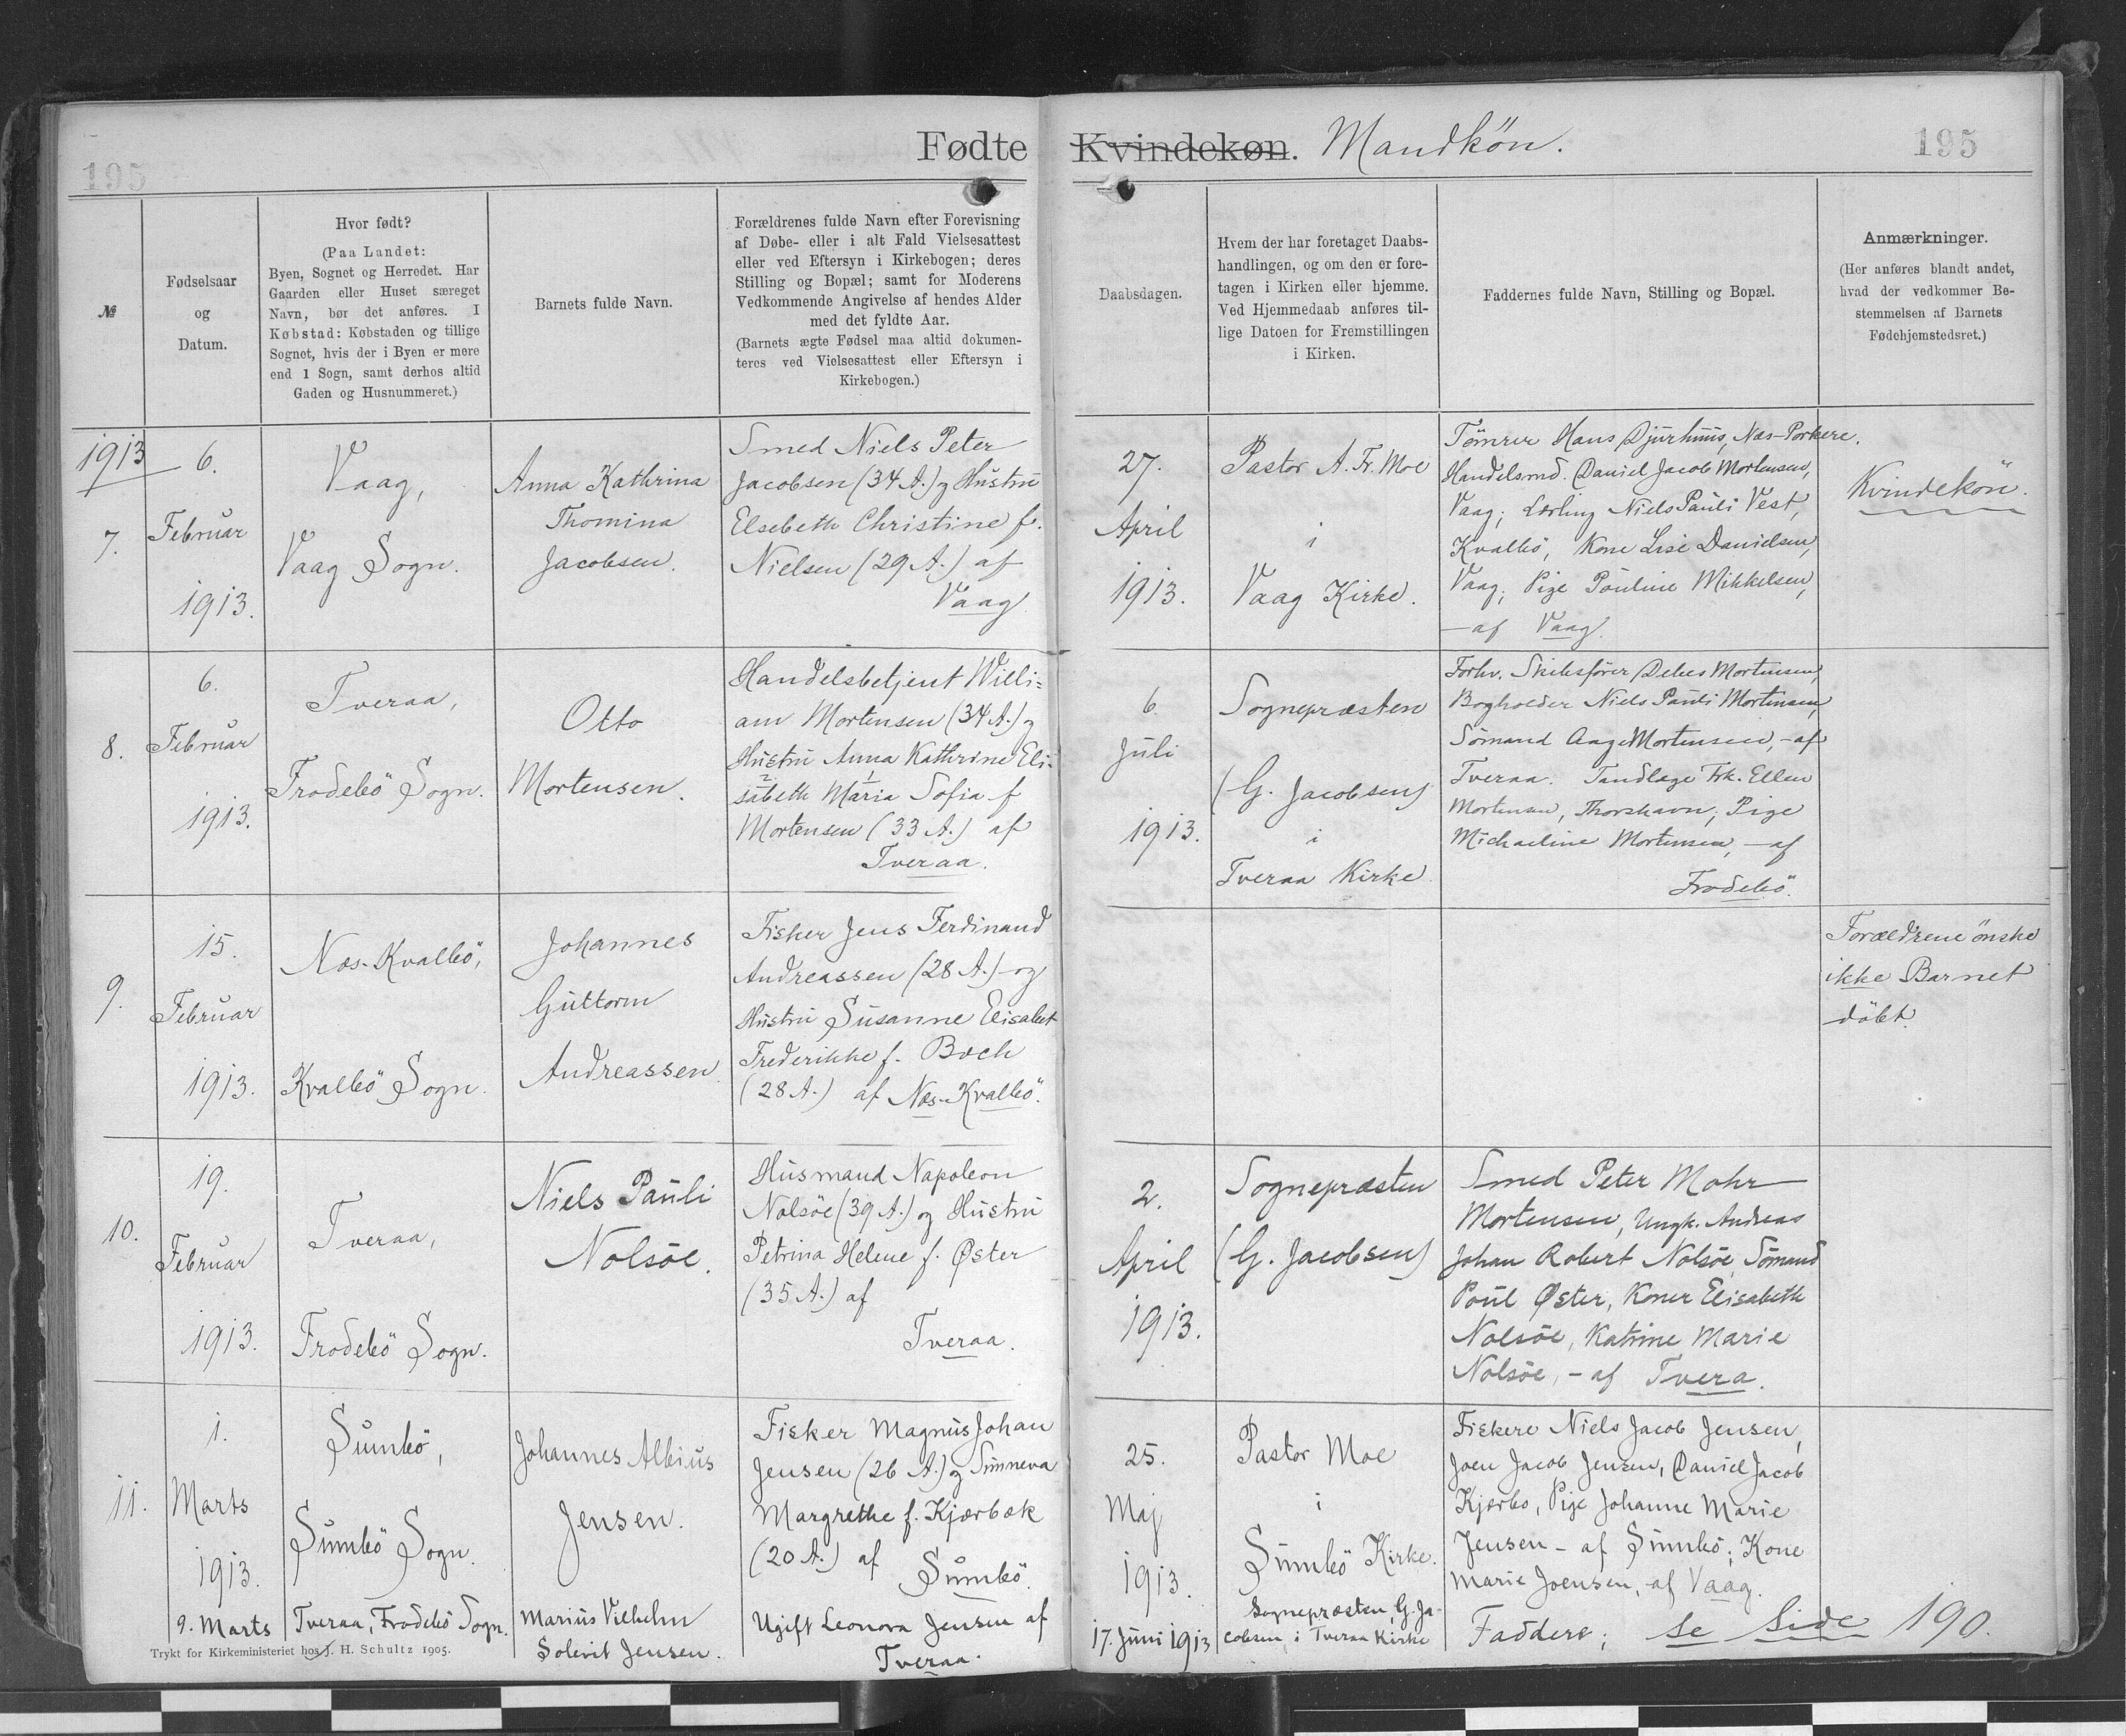 195
Fødte Kvindekøn. Mandkön.
195
№
Fødselsaar
og
Datum.
Hvor født?
(Paa Landet:
Byen, Sognet og Herredet. Har
Gaarden eller Huset særeget
Navn, bør det anføres. I
Købstad: Købstaden og tillige
Sognet, hvis der i Byen er mere
end 1 Sogn, samt derhos altid
Gaden og Husnummeret.)
Barnets fulde Navn.
Forældrenes fulde Navn efter Forevisning
af Døbe- eller i alt Fald Vielsesattest
eller ved Eftersyn i Kirkebogen; deres
Stilling og Bopæl; samt for Moderens
Vedkommende Angivelse af hendes Alder
med det fyldte Aar.
(Barnets ægte Fødsel maa altid dokumen-
teres ved Vielsesattest eller Eftersyn i
Kirkebogen.)
Daabsdagen.
Hvem der har foretaget Daabs-
handlingen, og om den er fore-
tagen i Kirken eller hjemme.
Ved Hjemmedaab anføres til-
lige Datoen for Fremstillingen
i Kirken.
Faddernes fulde Navn, Stilling og Bopæl.
Anmærkninger.
(Her anføres blandt andet,
hvad der vedkommer Be-
stemmelsen af Barnets
Fødehjemstedsret.)
1913
7.
6.
Februar
1913.
Vaag,
Vaag Sogn.
Anna Kathrina
Thomina
Jacobsen.
Smed Niels Peter
Jacobsen (34 A.) og Hustru
Elsebeth Christine f.
Nielsen (29 A.) af
Vaag.
27.
April
1913.
Pastor A. Fr. Moe
i
Vaag Kirke.
Tömrer Hans Djurhuus, Næs-Porkere.
Handelsmd. Daniel Jacob Mortensen,
Vaag; Lærling Niels Pauli Vest,
Kvalbö, Kone Lise Danielsen,
Vaag; Pige Pouline Mikkelsen,
—af Vaag.
Kvindekön.
8.
6.
Februar
1913.
Tveraa,
Frodebö Sogn.
Otto
Mortensen.
Handelsbetjent Willi=
am Mortensen (34 A.) og
Hustru Anna Kathrine Eli=
sabeth Maria Sofia f
Mortensen (33 A.) af
Tveraa.
6.
Juli
1913.
Sognepræsten
(G. Jacobsen)
i
Tveraa Kirke
Forhv. Skibsfører Debes Mortensen,
Bogholder Niels Pauli Mortensen,
Sömand Aage Mortensen, -af
Tveraa. Tandlæge Frk. Ellen
Mortensen, Thorshavn; Pige
Michaeline Mortensen, —af
Frodebö.
9.
15.
Februar
1913.
Næs-Kvalbö,
Kvalbö Sogn.
Johannes
Guttorm
Andreassen.
Fisker Jens Ferdinand
Andreassen (28 A.) og
Hustru Susanne Elisabet
Frederikke f. Bech
(28 A.) af Næs-Kvalbö.
Forældrene önske
ikke Barnet
döbt.
10.
19.
Februar
1913.
Tveraa,
Frodebö Sogn.
Niels Pauli
Nolsöe.
Husmand Napoleon
Nolsöe (39 A.) og Hustru
Petrina Helene f. Øster
(35 A.) af
Tveraa.
2.
April
1913.
Sognepræsten
(G. Jacobsen)
Smed Peter Mohr
Mortensen, Ungk. Andreas
Johan Robert Nolsöe, Sömand
Poul Øster, Koner Elisabeth
Nolsöe, Katrine Marie
Nolsöe, - af Tvera.
11.
1.
Marts
1913.
Sumbö,
Sumbö Sogn.
Johannes Albius
Jensen.
Fisker Magnus Johan
Jensen (26 A.) og Sunneva
Margrethe f. Kjærbæk
(20 A.) af
Sumbö.
25.
Maj
1913.
Pastor Moe
i
Sumbö Kirke.
Fiskere Niels Jacob Jensen,
Joen Jacob Jensen, Daniel Jacob
Kjærbo, Pige Johanne Marie
Jensen - af Sumbö; Kone
Marie Joensen, af Vaag.
9. Marts
Tveraa, Frodebö Sogn.
Marius Vilhelm
Solevit Jensen.
Ugift Leonora Jensen af
Tveraa.
17. Juni 1913
Sognepræsten, G. Ja-
cobsen, i Tveraa Kirke
Faddere; se Side 190.
Trykt for Kirkeministeriet hos J. H. Schultz 1905.